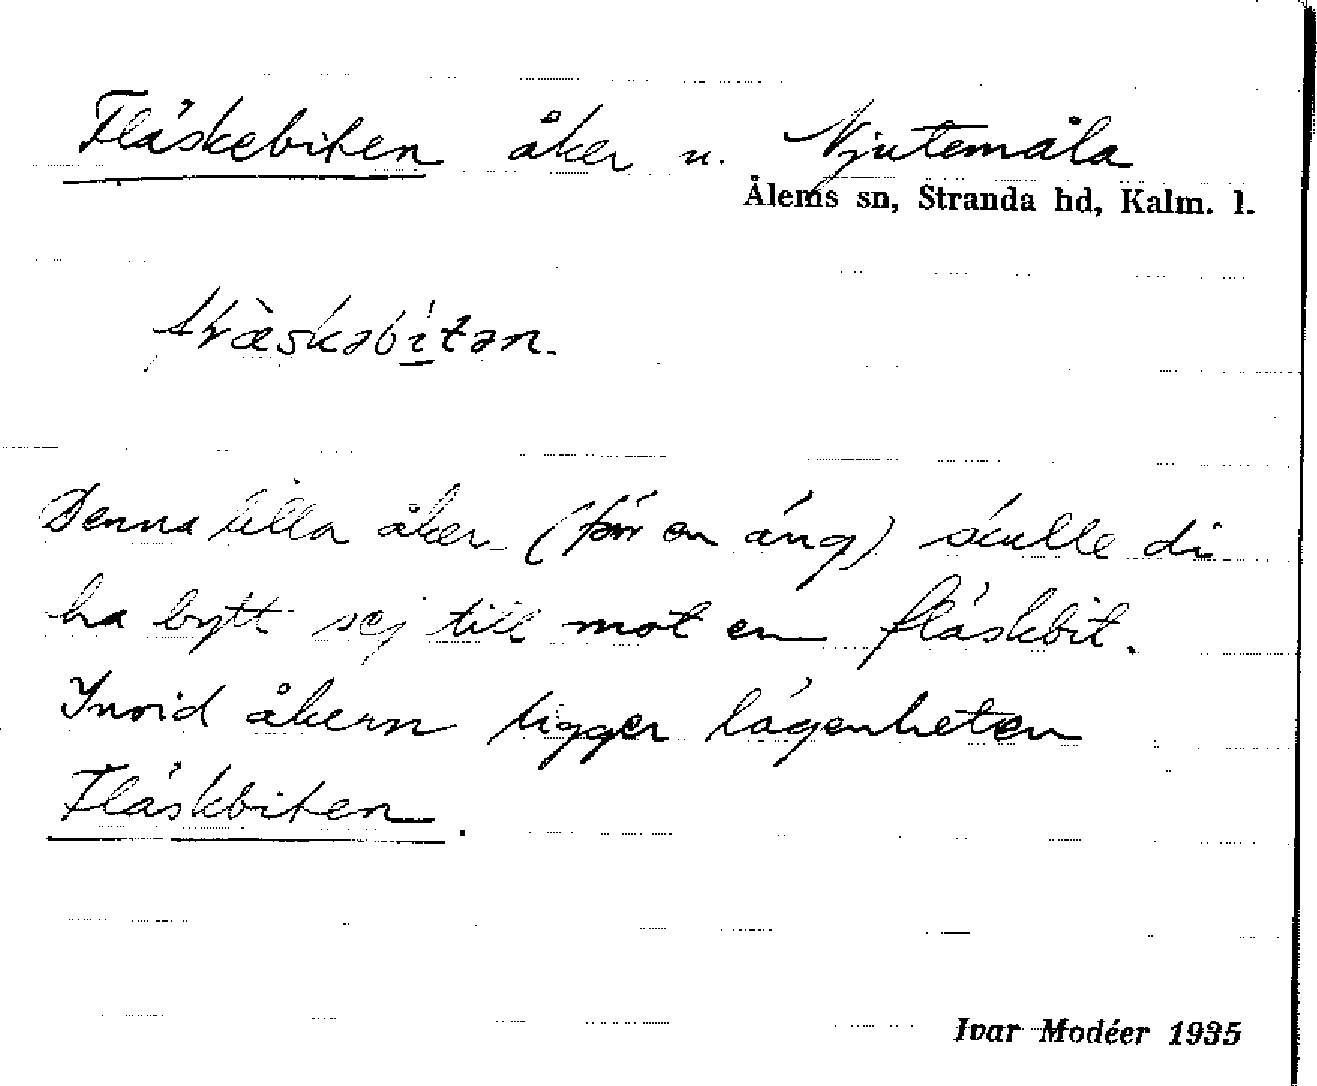 Fläskebiten åker u. Njutemåla
Ålems sn, Stranda hd, Kalm. l.
flæ̀skəbítən.
Denna lilla åker (förr en äng) skulle di
ha bytt sej till mot en fläskbit.
Invid åkern ligger lägenheten
Fläskbiten.
Ivar Modéer 1935